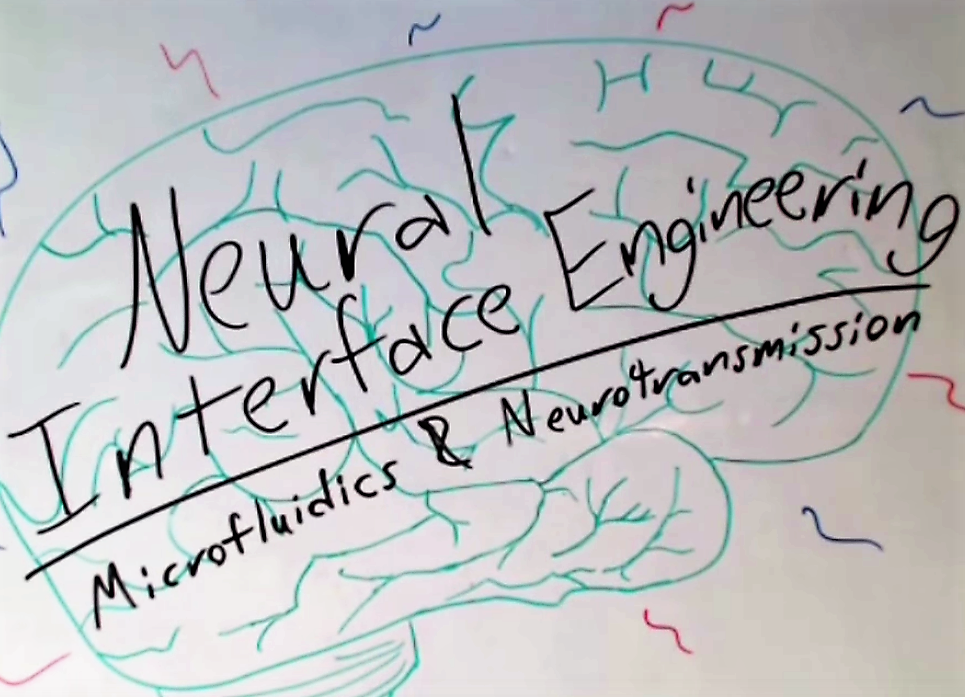 Neural
Interface Engineering
Microfluidics & Neurotransmission